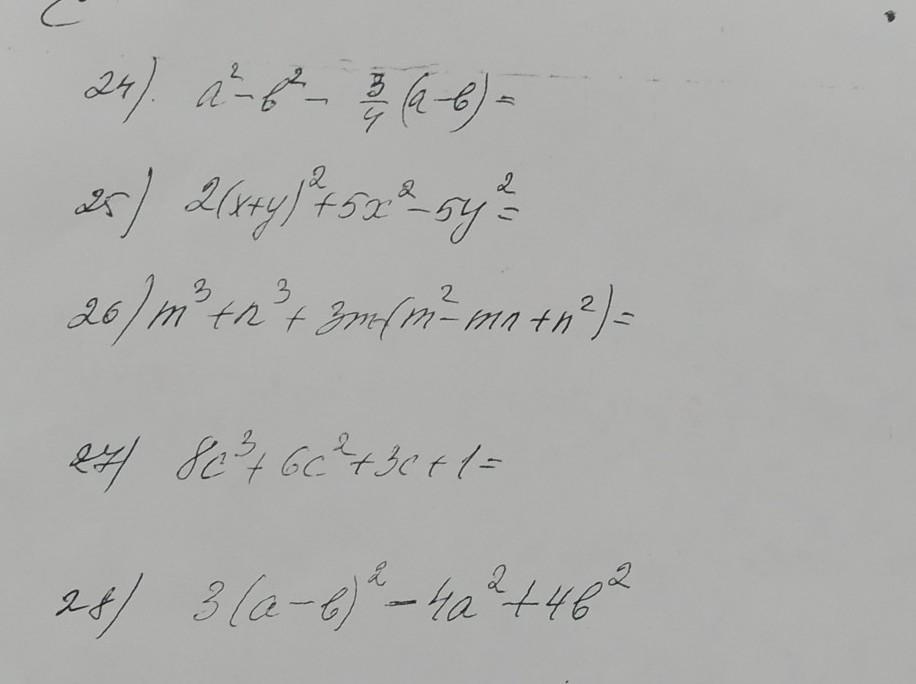 24). a² - b² - 3/4 (a - b) =
25) 2(x+y)² + 5x² - 5y² =
26) m³ + n³ + 3m(m² - mn + n²) =
27) 8c³ + 6c² + 3c + 1 =
28) 3(a - b)² - 4a² + 4b²